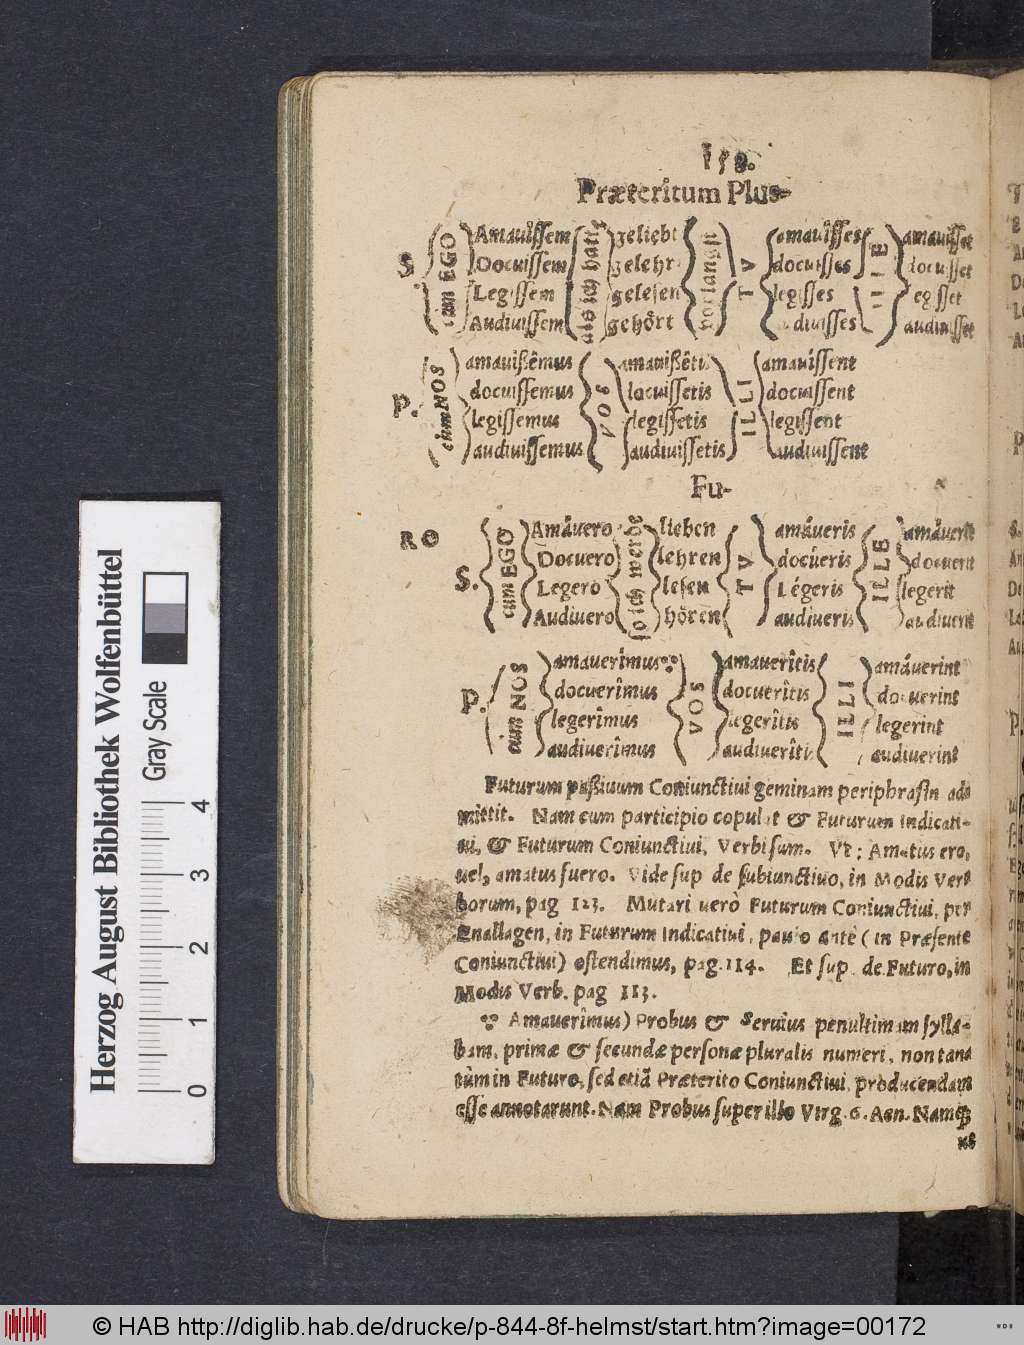 158.
Præterîtum Plus-
S cùm EGO Amauiſſem als ich hatte geliebt vorlangſt TV amauiſſes ILLE amauiſſet
Docuiſſem gelehrt docuiſſes docuiſſet
Legiſſem geleſen legiſſes legiſſet
Audiuiſſem gehört audiuiſſes audiuiſſet
P. cùm NOS amauißêmus VOS amauißêtis ILLI amauiſſent
docuiſſemus docuiſſetis docuiſſent
legiſſemus legiſſetis legiſſent
audiuiſſemus audiuiſſetis audiuiſſent
Fu-
RO
S. cum EGO Amâuero ſo ich werde lieben TV amâueris ILLE amâuerit
Docuero lehren docúeris docuerit
Legero leſen Légeris legerit
Audiuero hören audiueris audiuerit
P. cùm NOS amauerîmus VOS amauerîtis ILLI amâuerint
docuerîmus docuerîtis docuerint
legerîmus legerîtis legerint
audiuerîmus audiuerîtis audiuerint
Futurum paßiuum Coniunctiui geminam periphraſin ad-
mittit. Nam cum participio copulat & Futurum Indicati-
ui, & Futurum Coniunctiui, Verbi ſum. Vt: Amatus ero,
uel, amatus fuero. Vide ſup de ſubiunctiuo, in Modis Ver-
borum, pag 123. Mutari uerò Futurum Coniunctiui, per
Enallagen, in Futurum Indicatiui, paulo antè (in Præſente
Coniunctiui) oſtendimus, pag. 114. Et ſup de Futuro, in
Modis Verb. pag 113.
Amauerîmus) Probus & Seruius penultimam ſylla-
bam, primæ & ſecundæ perſonæ pluralis numeri, non tan-
tùm in Futuro, ſed etiã Præterito Coniunctiui, producendam
eſſe annotarunt. Nam Probus ſuper illo Virg. 6. Aen. Namq́;
ut
Herzog August Bibliothek Wolfenbüttel
Gray Scale
0 1 2 3 4
© HAB http://diglib.hab.de/drucke/p-844-8f-helmst/start.htm?image=00172
WDB